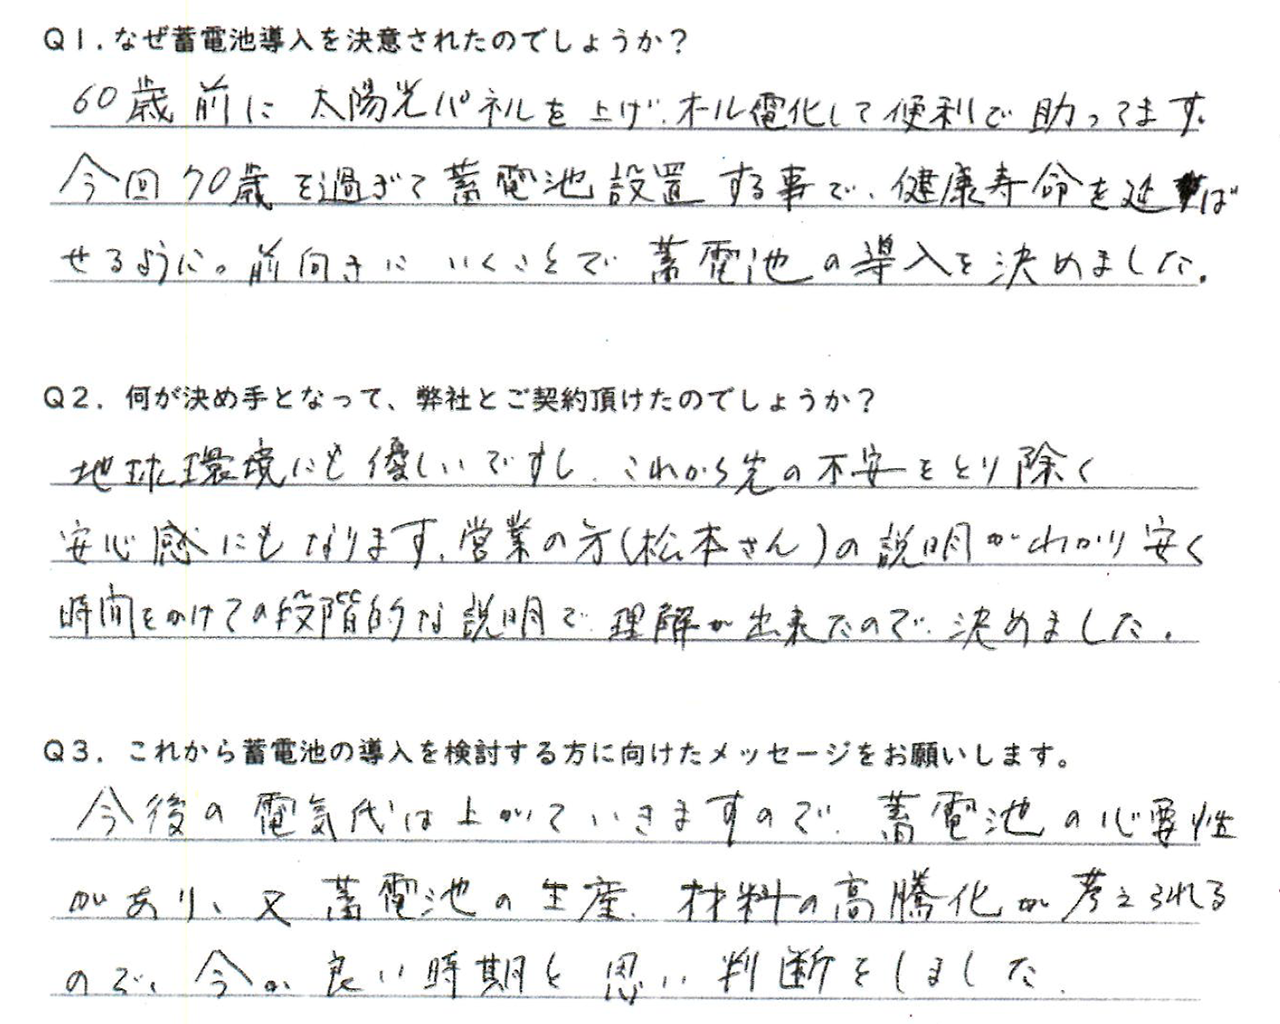 Q1.なぜ蓄電池導入を決意されたのでしょうか？
60歳前に太陽光パネルを上げ、オール電化して便利で助ってます。
今回70歳を過ぎて蓄電池設置する事で、健康寿命を延ば
せるように。前向きにいくことで蓄電池の導入を決めました。
Q2．何が決め手となって、弊社とご契約頂けたのでしょうか？
地球環境にも優しいですし、これから先の不安をとり除く
安心感にもなります。営業の方(松本さん)の説明がわかり安く
時間をかけての段階的な説明で、理解が出来たので、決めました。
Q3．これから蓄電池の導入を検討する方に向けたメッセージをお願いします。
今後の電気代は上がっていきますので、蓄電池の必要性
があり、又蓄電池の生産、材料の高騰化が考えられる
ので、今が良い時期と思い判断をしました。